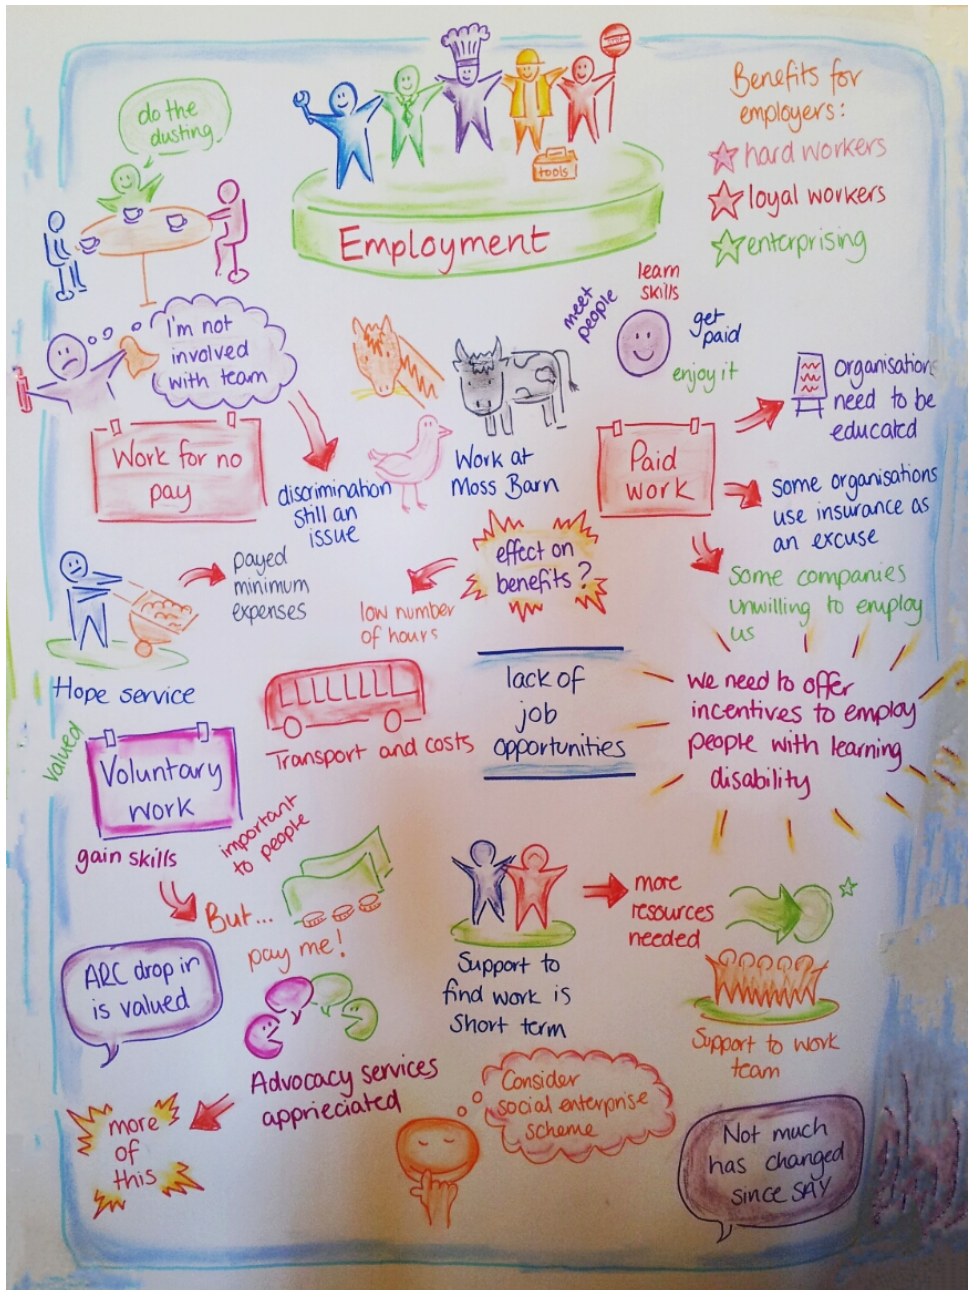 do the
dusting
STOP
tools
Employment
Benefits for
employers:
hard workers
loyal workers
enterprising
I'm not
involved
with team
meet
people
learn
skills
get
paid
enjoy it
Work for no
pay
discrimination
still an
issue
Work at
Moss Barn
Paid
work
organisations
need to be
educated
some organisations
use insurance as
an excuse
Some companies
unwilling to employ
us
payed
minimum
expenses
effect on
benefits?
low number
of hours
Hope service
Transport and costs
lack of
job
opportunities
we need to offer
incentives to employ
people with learning
disability
Valued
Voluntary
work
gain skills
important
to people
But...
pay me!
ARC drop in
is valued
Support to
find work is
Short term
more
resources
needed
Support to work
team
Advocacy services
apprieciated
more
of
this
Consider
social enterprise
scheme
Not much
has changed
since SAY